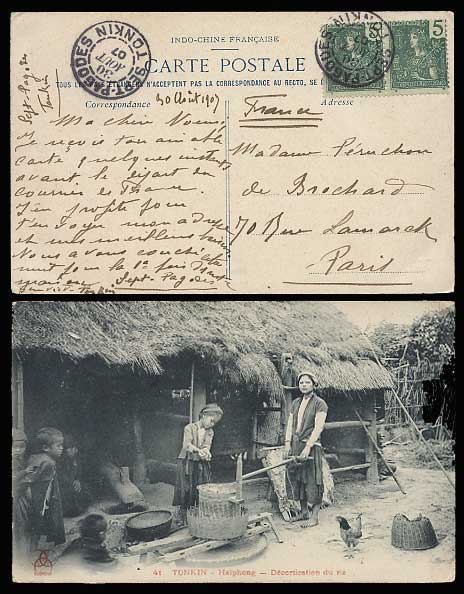 INDO-CHINE FRANÇAISE
CARTE POSTALE
TOUS LES PAYS ÉTRANGERS N'ACCEPTENT PAS LA CORRESPONDANCE AU RECTO, SE
Correspondance
Adresse
SEPT-PAGODES TONKIN
30 AOUT 07
SEPT-PAGODES TONKIN
5
5
Sept-Pagodes
Tonkin
30 Août 1907
Ma chère
Je reçois ton aimable
carte quelques instants
avant le départ du
courrier de France.
J'en profite pour
t'envoyer mon adresse
et mes meilleurs
Nous avons couché
pour la 1e fois
Sept-Pagodes
Tonkin
France
Madame Péruchon
de Brochard
70 Rue Lamarck
Paris
41 TONKIN - Haïphong - Décortication du riz